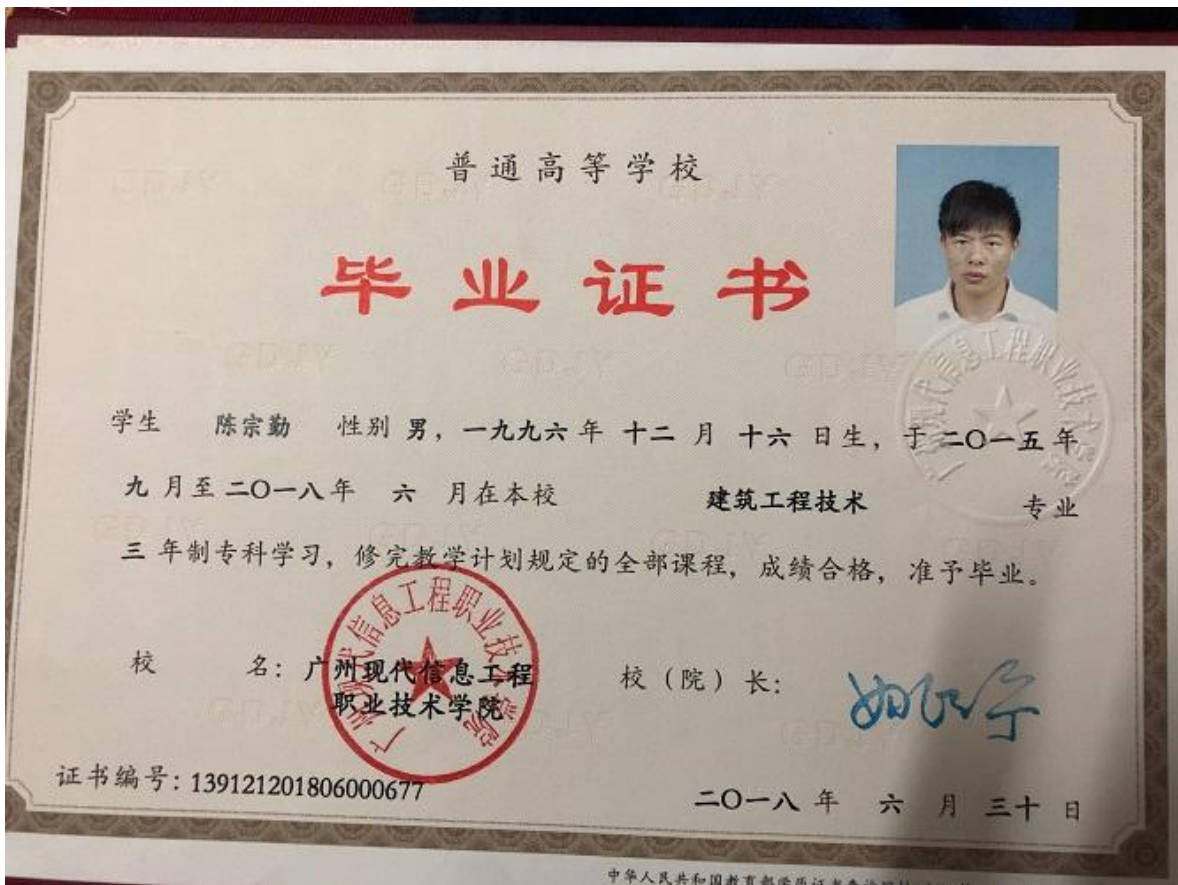 普通高等学校
毕业证书
学生 陈宗勤 性别 男，一九九六年 十二 月 十六 日生，于二〇一五年
九 月至二〇一八年 六 月在本校 建筑工程技术 专业
三 年制专科学习，修完教学计划规定的全部课程，成绩合格，准予毕业。
校 名：广州现代信息工程
职业技术学院
校（院）长：
证书编号：139121201806000677
二〇一八 年 六 月 三十 日
广州现代信息工程职业技术学院
广州现代信息工程职业技术学院
中华人民共和国教育部学历证书查询网